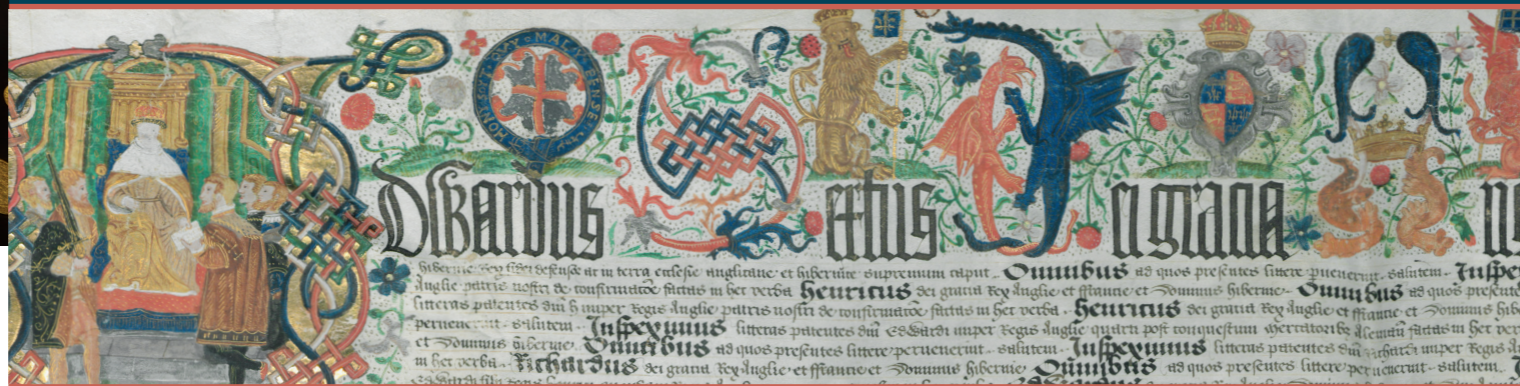 HONI SOIT QVY MAL Y PENSE
Edwardus Sextus Dei gratia
hibernie Rex fidei defensor ac in terra ecclesie anglicane et hibernice supremum caput. Omnibus ad quos presentes littere pervenerint salutem. Inspe
Anglie patris nostri de confirmacoe factas in hec verba Henricus dei gratia Rex Anglie et ffrancie et Dominus hibernie. Omnibus ad quos presente
litteras patentes dni h nuper Regis Anglie patris nostri de confirmacoe factas in hec verba. Henricus dei gratia Rex Anglie et ffrancie et Dominus hib
pervenerint salutem. Inspeximus litteras patentes dni Edwardi nuper Regis Anglie quarti post conquestum mercatoribz Alemañ factas in hec ver
et Dominus hibernie. Omnibus ad quos presentes littere pervenerint salutem. Inspeximus litteras patentes dni Richardi nuper Regis
in hec verba. Richardus dei gratia Rex Anglie et ffrancie et Dominus hibernie Omnibus ad quos presentes littere pervenerint salutem.